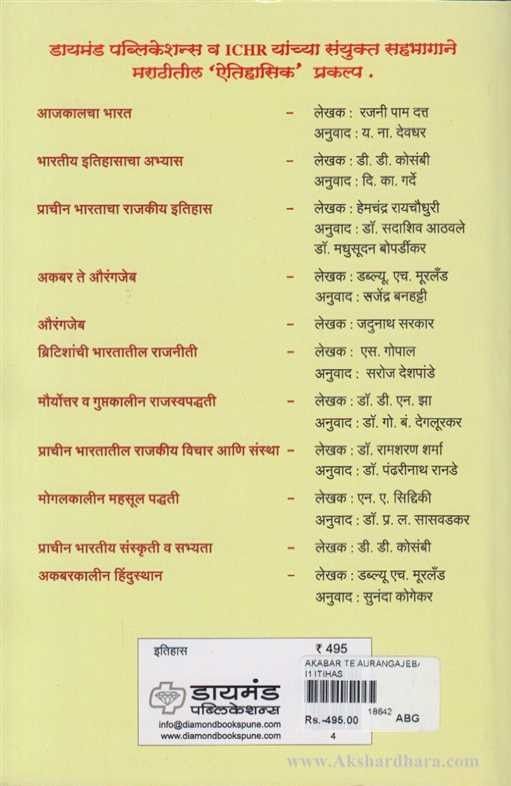 डायमंड पब्लिकेशन्स व ICHR यांच्या संयुक्त सहभागाने
मराठीतील ‘ऐतिहासिक’ प्रकल्प .
आजकालचा भारत – लेखक : रजनी पाम दत्त
अनुवाद : य. ना. देवधर
भारतीय इतिहासाचा अभ्यास – लेखक : डी. डी. कोसंबी
अनुवाद : दि. का. गर्दे
प्राचीन भारताचा राजकीय इतिहास – लेखक : हेमचंद्र रायचौधुरी
अनुवाद : डॉ. सदाशिव आठवले
डॉ. मधुसूदन बोपर्डीकर
अकबर ते औरंगजेब – लेखक : डब्ल्यू. एच. मूरलँड
अनुवाद : राजेंद्र बनहट्टी
औरंगजेब – लेखक : जदुनाथ सरकार
ब्रिटिशांची भारतातील राजनीती – लेखक : एस. गोपाल
अनुवाद : सरोज देशपांडे
मौर्योत्तर व गुप्तकालीन राजस्वपद्धती – लेखक : डॉ. डी. एन. झा
अनुवाद : डॉ. गो. बं. देगलूरकर
प्राचीन भारतातील राजकीय विचार आणि संस्था – लेखक : डॉ. रामशरण शर्मा
अनुवाद : डॉ. पंढरीनाथ रानडे
मोगलकालीन महसूल पद्धती – लेखक : एन. ए. सिद्दिकी
अनुवाद : डॉ. प्र. ल. सासवडकर
प्राचीन भारतीय संस्कृती व सभ्यता – लेखक : डी. डी. कोसंबी
अकबरकालीन हिंदुस्थान – लेखक : डब्ल्यू एच. मूरलँड
अनुवाद : सुनंदा कोगेकर
इतिहास ₹ 495
AKABAR TE AURANGAJEB/
I1 ITIHAS
डायमंड
पब्लिकेशन्स
18642
Rs.-495.00 ABG
info@diamondbookspune.com
www.diamondbookspune.com 4
www.Akshardhara.com